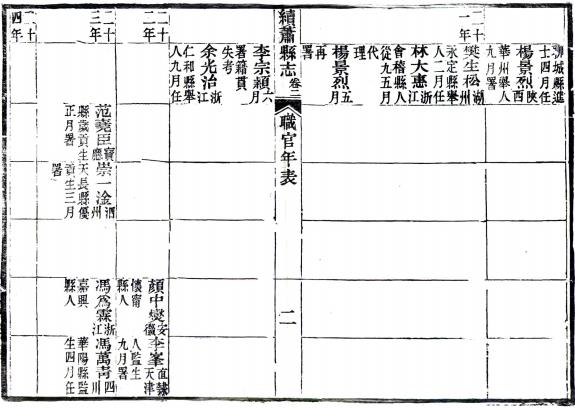 聊城縣進
士四月任
楊景烈陝西
華州舉人
九月署
二十一年
樊生松湖州
永定縣舉
人二月任
林大惠浙江
會稽人
從九五月
代理
楊景烈五月
再署
李宗穎六月
署籍貫
失考
余光治浙江
仁和縣舉
人九月任
續蕭縣志
卷三
職官年表
二
二十二年
顏中燮安徽
懷甯
縣人
李峯直隸天津
人監生
九月署
二十三年
范堯臣寶應
縣歲貢生
正月署
崇一淦泗州
天長縣優
貢生三月
署
馮爲霖浙江
嘉興
縣人
馮萬青四川
華陽縣監
生四月任
二十四年